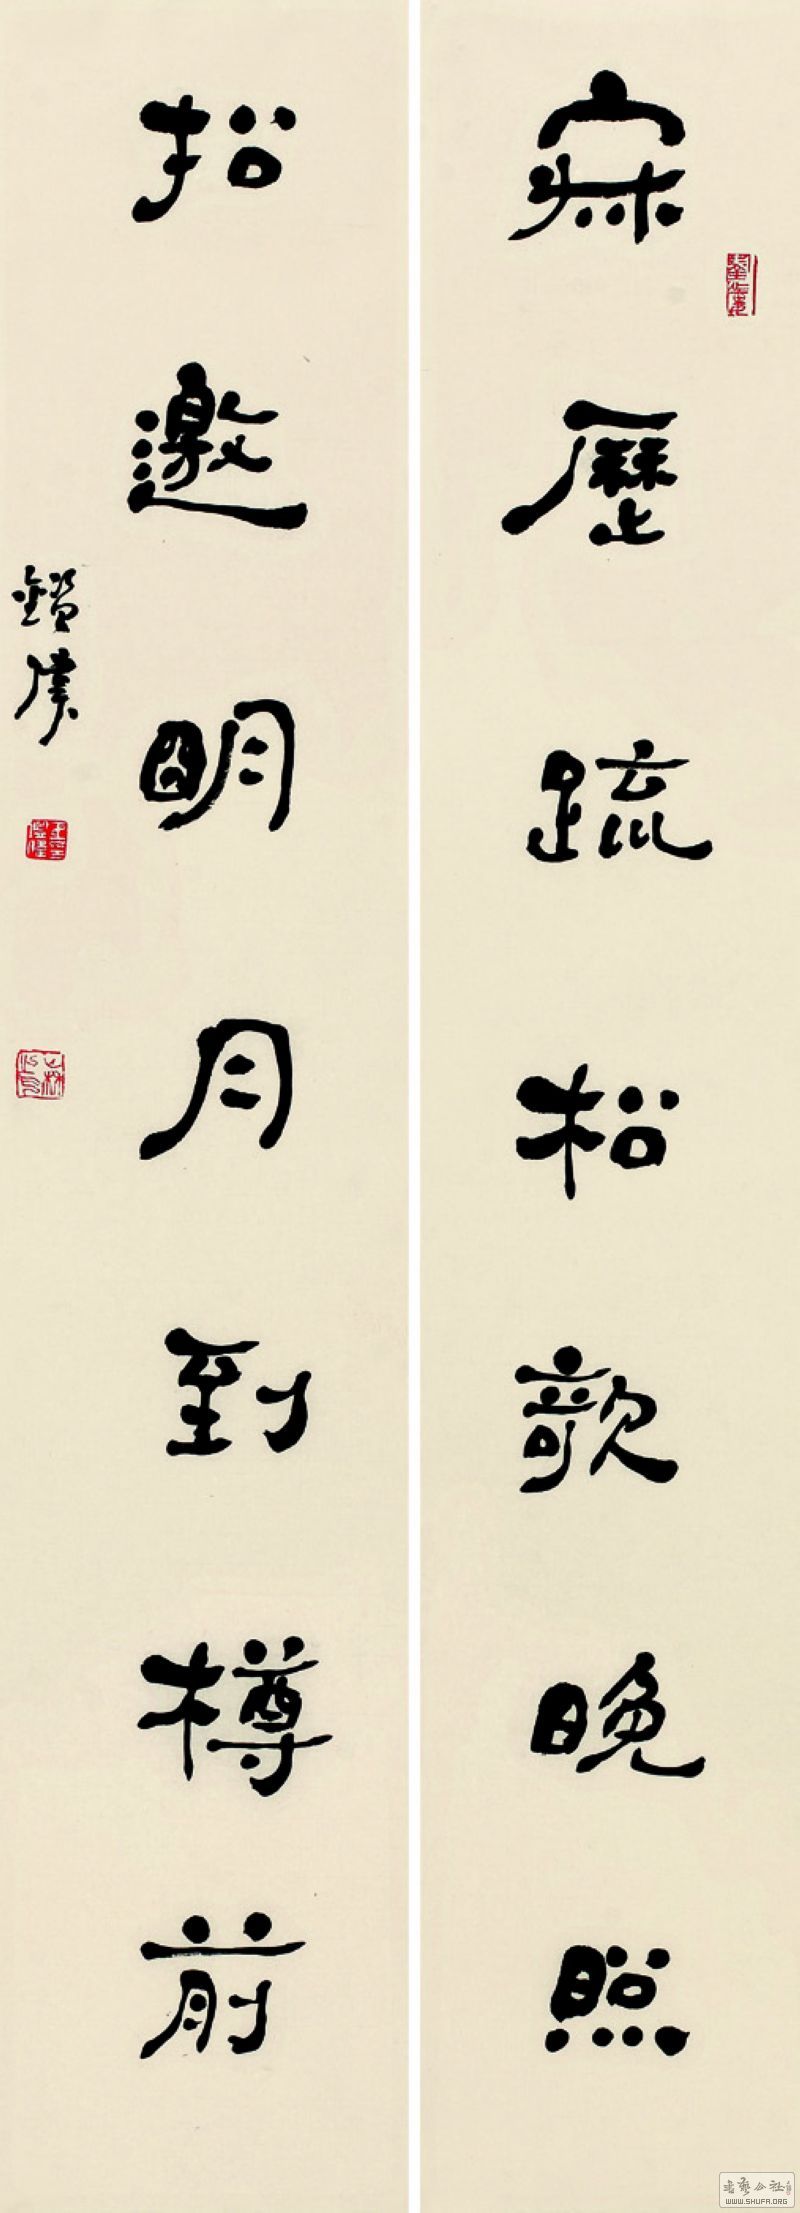 寂歷疏松歌晚照
招邀明月到樽前
鐙虞
書藝公社
WWW.SHUFA.ORG